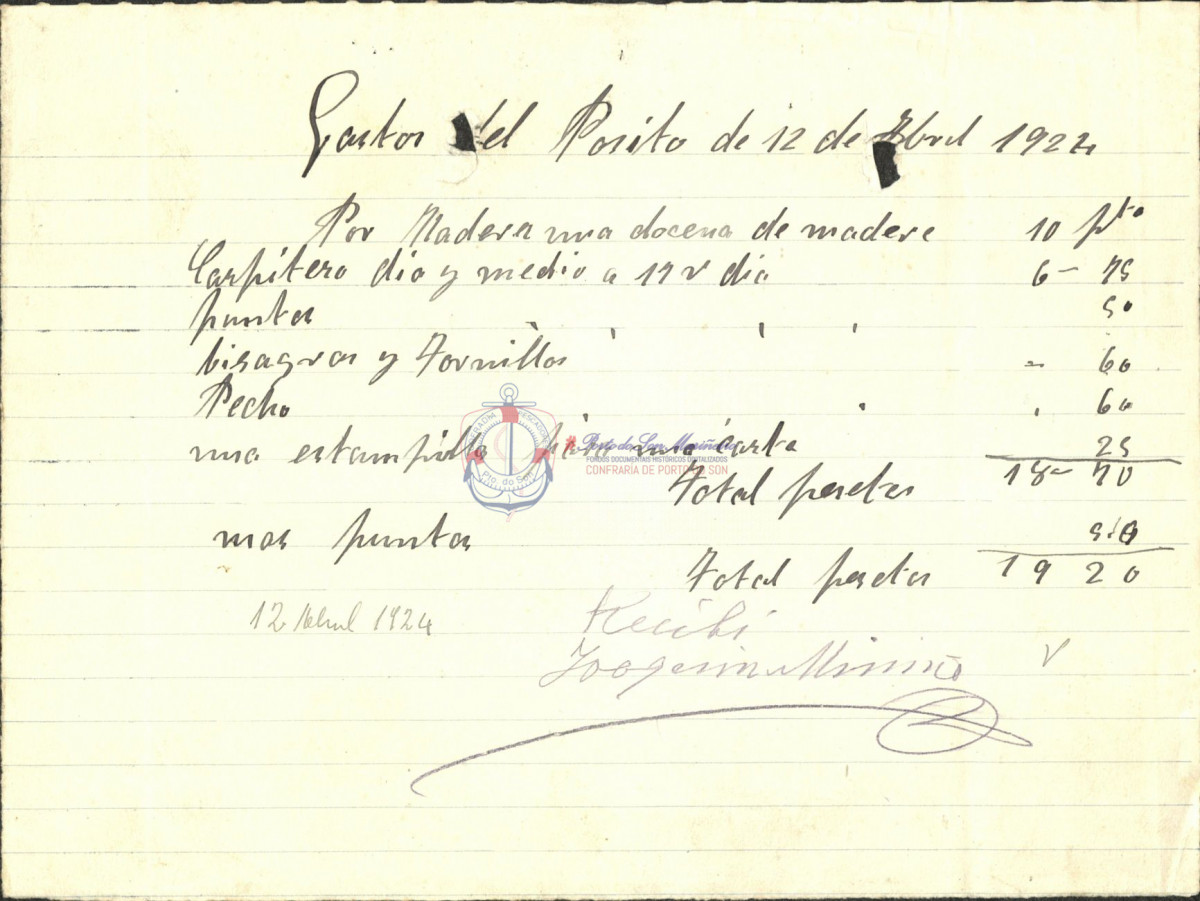 Gastos del Posito de 12 de Abril 1924
Por Madera una docena de madere 10 pts
Carpitero dia y medio a 17 r dia 6- 75
puntas 50
bisagras y Tornillos - 60
Pecho 60
una estampilla una carta 25
Total pesetas 18- 70
mas puntas 50
Total pesetas 19 20
12 Abril 1924
Recibi
Joaquin
Pto. do Son
Porto do Son Mariñeiro
FONDOS DOCUMENTAIS HISTÓRICOS DIXITALIZADOS
CONFRARÍA DE PORTO DO SON